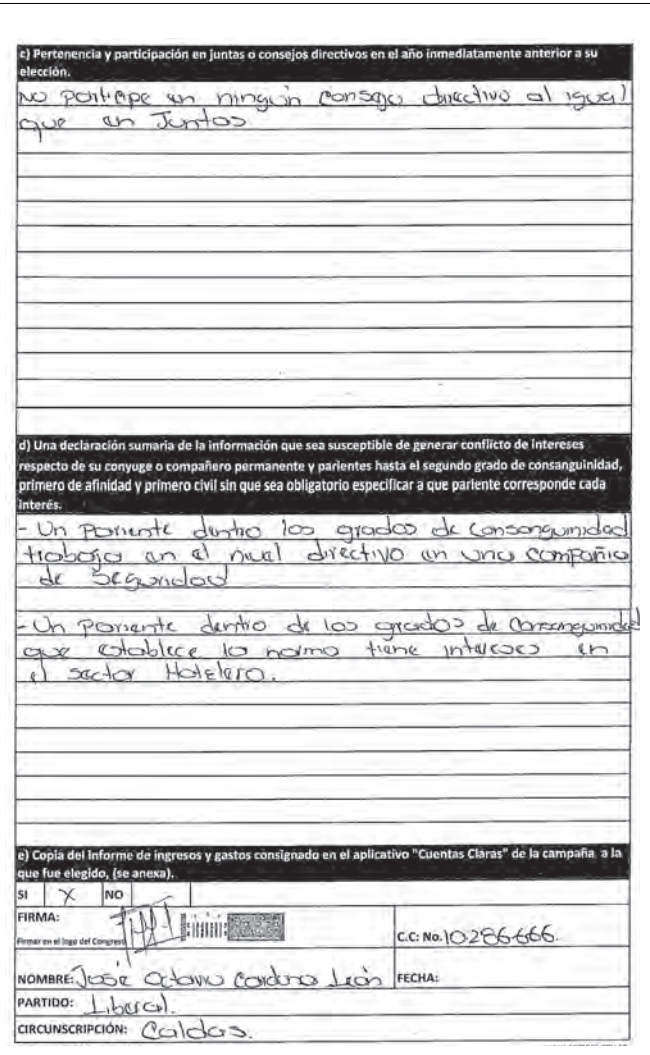 c) Pertenencia y participación en juntas o consejos directivos en el año inmediatamente anterior a su
elección.
No participe en ningún consejo directivo al igual
que en Juntas
d) Una declaración sumaria de la información que sea susceptible de generar conflicto de intereses
respecto de su conyuge o compañero permanente y parientes hasta el segundo grado de consanguinidad,
primero de afinidad y primero civil sin que sea obligatorio especificar a que pariente corresponde cada
interés.
- Un Pariente dentro los grados de Consanguinidad
trabaja en el nivel directivo en una compañia
de Seguridad
- Un Pariente dentro de los grados de Consanguinidad
que establece la norma tiene intereses en
el sector Hotelero.
e) Copia del Informe de ingresos y gastos consignado en el aplicativo "Cuentas Claras" de la campaña a la
que fue elegido, (se anexa).
SI X NO
FIRMA:
Firmar en el logo del Congreso
C.C: No. 10286666.
NOMBRE: José Octavio Cardona León FECHA:
PARTIDO: Liberal.
CIRCUNSCRIPCIÓN: Caldas.